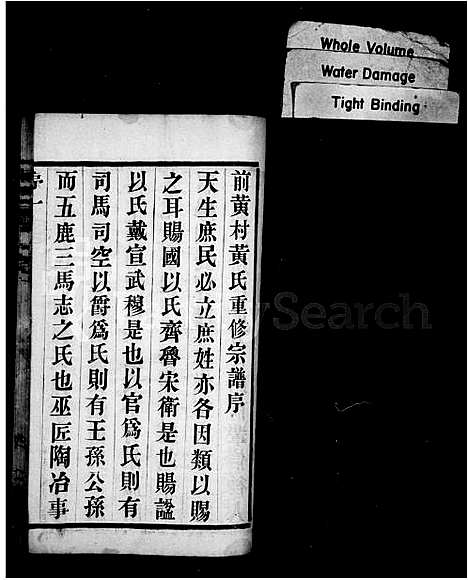 Whole Volume
Water Damage
Tight Binding
前黃村黃氏重修宗譜序
天生庶民必立庶姓亦各因類以賜
之耳賜國以氏齊魯宋衛是也賜諡
以氏戴宣武穆是也以官爲氏則有
司馬司空以爵爲氏則有王孫公孫
而五鹿三馬志之氏也巫匠陶冶事
序一